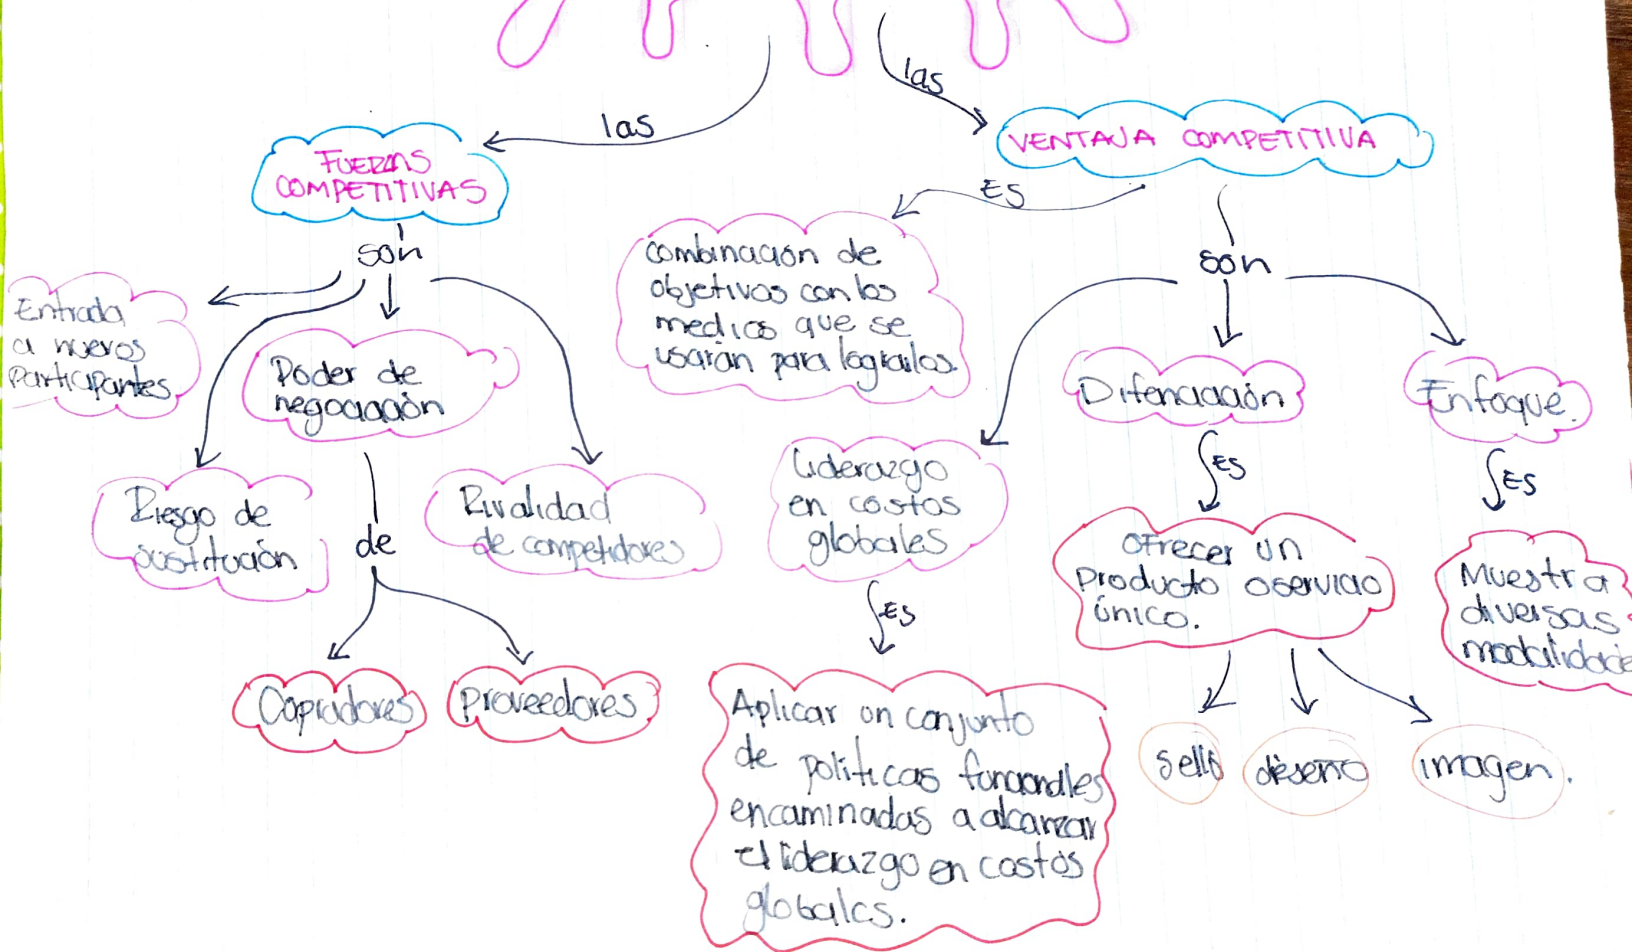 las
las
FUERZAS
COMPETITIVAS
VENTAJA COMPETITIVA
son
Entrada
a nuevos
participantes
Poder de
negociación
Riesgo de
sustitución
Rivalidad
de competidores
de
Copradores
Proveedores
ES
combinación de
objetivos con los
medios que se
usarán para lograrlos.
son
Liderazgo
en costos
globales
ES
Aplicar un conjunto
de políticas funcionales
encaminadas a alcanzar
el liderazgo en costos
globales.
Difenciación
ES
Ofrecer un
producto o servicio
único.
sello
diseño
imagen.
Enfoque.
ES
Muestra
diversas